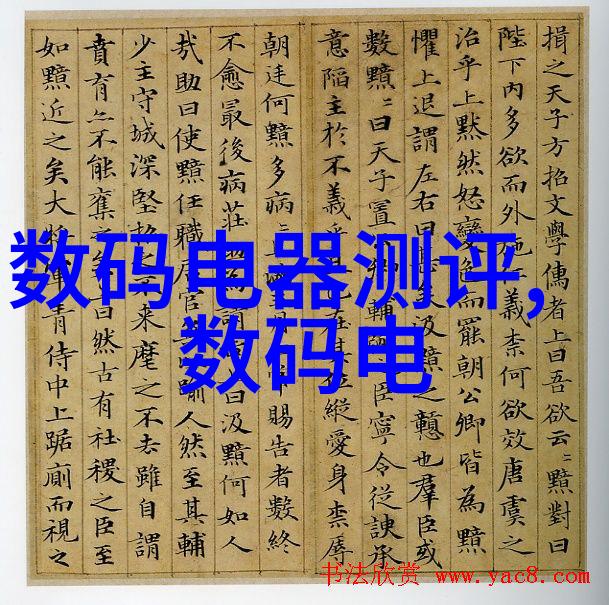 損之天子方招文學儒者上曰吾欲云〻黯對曰
陛下內多欲而外施義柰何欲效唐虞之
治乎上默然怒變色而罷朝公卿皆為黯
懼上退謂左右曰甚矣汲黯之戇也羣臣或
數黯〻曰天子置輔臣寧令從諛承
意陷主於不義乎在其位縱愛身柰辱
朝廷何黯多病賜告者數終
不愈最後病莊助為謂曰汲黯何如人
哉助曰使黯任職居官踰人然至其輔
少主守城深堅招之不來麾之不去雖自謂
賁育亦不能奪之曰然古有社稷之臣至
如黯近之矣大將軍青侍中上踞廁而視之
数码电器测评,
数码电
书法欣赏 www.yac8.com